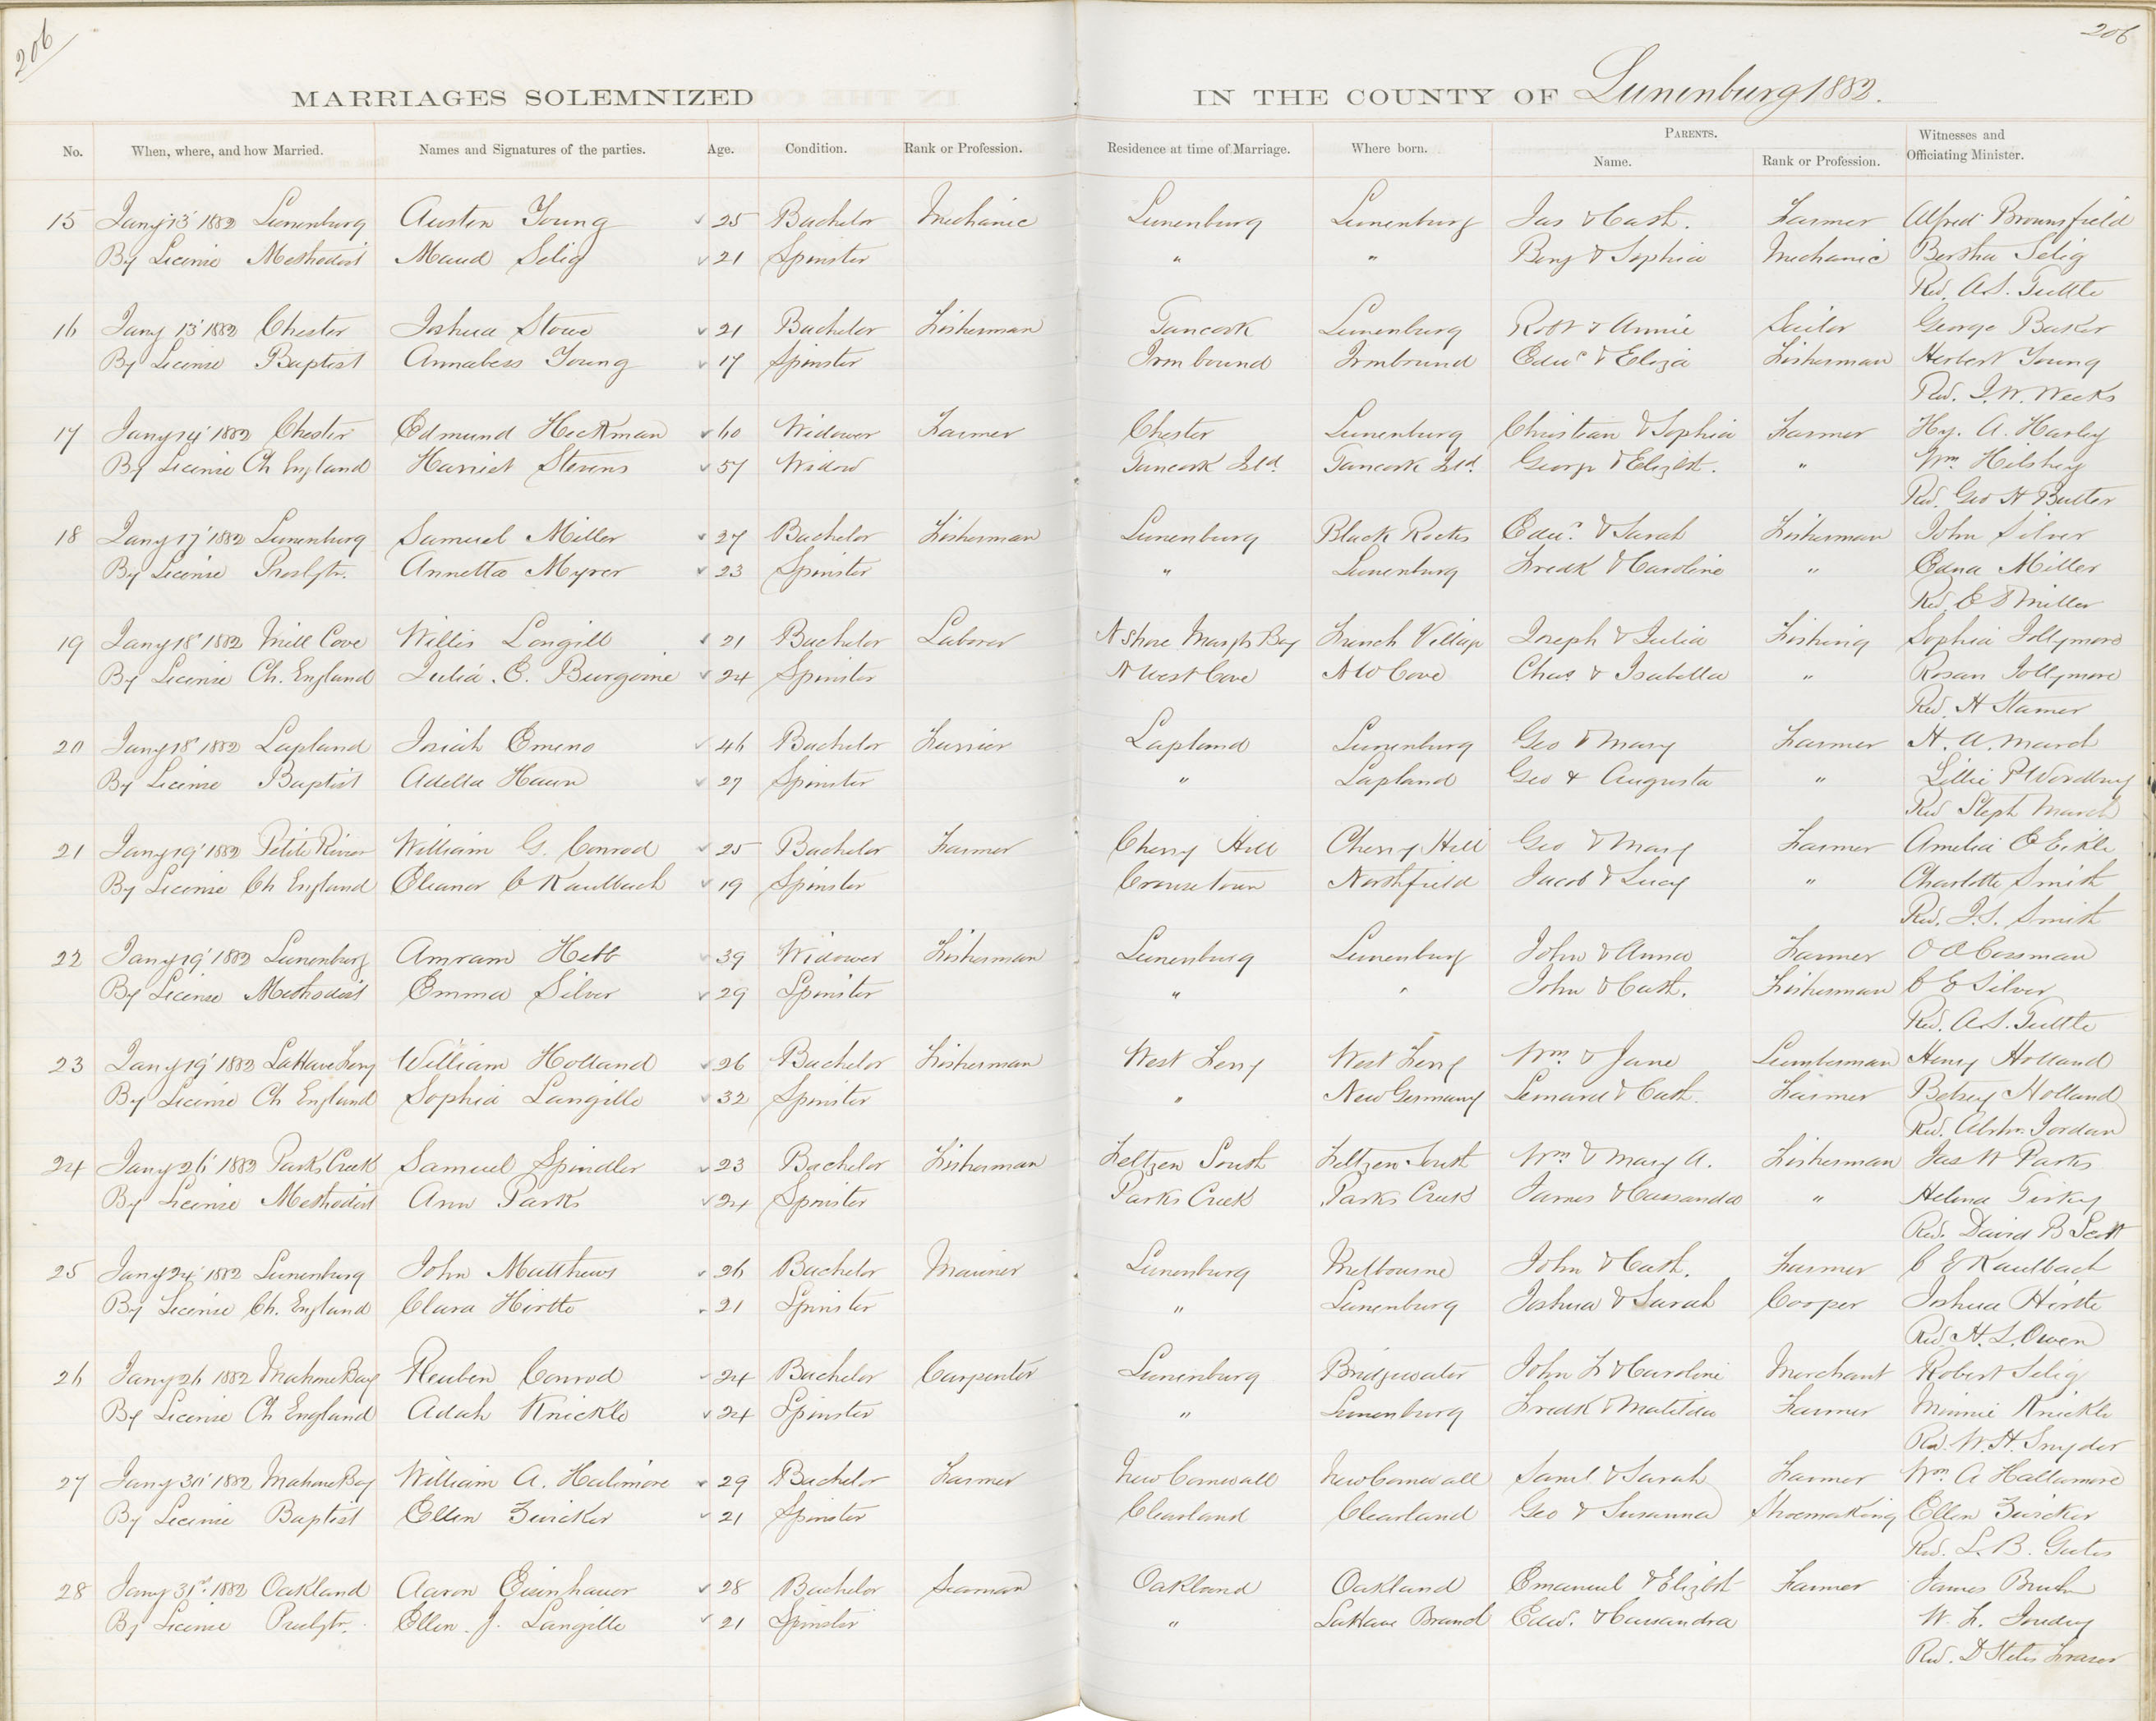 206
206
MARRIAGES SOLEMNIZED IN THE COUNTY OF Lunenburg 1882.
No. When, where, and how Married. Names and Signatures of the parties. Age. Condition. Rank or Profession. Residence at time of Marriage. Where born. PARENTS. Name. Rank or Profession. Witnesses and Officiating Minister.
15 Jany 13' 1882 Lunenburg Austen Young 25 Bachelor Mechanic Lunenburg Lunenburg Jas & Cath. Farmer Alfred Brownsfield
By License Methodist Maud Selig 21 Spinster " " Benj & Sophia Mechanic Bertha Selig
Rev. A.S. Tuttle
16 Jany 13' 1882 Chester Joshua Stowe 21 Bachelor Fisherman Tancook Lunenburg Robt & Annie Sailor George Baker
By License Baptist Annabess Young 17 Spinster Ironbound Ironbound Edwd & Eliza Fisherman Herbert Young
Rev. I.W. Weeks
17 Jany 14' 1882 Chester Edmund Heckman 60 Widower Farmer Chester Lunenburg Christian & Sophia Farmer Hy. A. Harley
By License Ch England Harriet Stevens 57 Widow Tancook Isld. Tancook Isld. George & Elizbt. " Wm Hilshey
Rev. Geo H Butler
18 Jany 17' 1882 Lunenburg Samuel Miller 27 Bachelor Fisherman Lunenburg Black Rocks Edwd. & Sarah Fisherman John Silver
By License Presbytr. Annetta Myrer 23 Spinster " Lunenburg Fredk & Caroline " Edna Miller
Rev. E D Miller
19 Jany 18' 1882 Mill Cove Willis Langill 21 Bachelor Laborer N Shore Margts Bay French Village Joseph & Julia Fishing Sophia Jollymore
By License Ch. England Julia. E. Burgoine 24 Spinster N West Cove N W Cove Chas & Isabella " Rosan Jollymore
Rev. H Stamer
20 Jany 18' 1882 Lapland Josiah Emeno 46 Bachelor Farrier Lapland Lunenburg Geo & Mary Farmer H. A. March
By License Baptist Adella Haun 27 Spinster " Lapland Geo & Augusta " Lillie P Wordbury
Rev Steph March
21 Jany 19' 1882 Petite River William G. Conrod 25 Bachelor Farmer Cherry Hill Cherry Hill Geo & Mary Farmer Amelia E Eikle
By License Ch England Eleanor C Kaulbach 19 Spinster Crousetown Northfield Jacob & Lucy " Charlotte Smith
Rev. J.S. Smith
22 Jany 19' 1882 Lunenburg Amram Hebb 39 Widower Fisherman Lunenburg Lunenburg John & Anna Farmer O A Cossman
By License Methodist Emma Silver 29 Spinster " " John & Cath. Fisherman C E Silver
Rev. A.S. Tuttle
23 Jany 19' 1882 LaHave Ferry William Holland 26 Bachelor Fisherman West Ferry West Ferry Wm & Jane Lumberman Henry Holland
By License Ch England Sophia Langille 32 Spinster " New Germany Lenard & Cath. Farmer Betsey Holland
Rev. Abrhm. Jordan
24 Jany 26' 1882 Parks Creek Samuel Spindler 23 Bachelor Fisherman Feltzen South Feltzen South Wm & Mary A. Fisherman Jas W Parks
By License Methodist Ann Parks 24 Spinster Parks Creek Parks Creek James & Cassanda " Helena
Rev. David B Scott
25 Jany 24' 1882 Lunenburg John Matthews 26 Bachelor Mariner Lunenburg Melbourne John & Cath. Farmer C E Kaulbach
By License Ch. England Clara Hirtle 21 Spinster " Lunenburg Joshua & Sarah Cooper Joshua Hirtle
Rev. H. L. Owen
26 Jany 26 1882 Mahone Bay Reuben Conrod 24 Bachelor Carpenter Lunenburg Bridgewater John F & Caroline Merchant Robert Selig
By License Ch England Adah Knickle 24 Spinster " Lunenburg Fredk & Matilda Farmer Minnie Knickle
Rev. W. H. Snyder
27 Jany 30' 1882 Mahone Bay William A. Halimore 29 Bachelor Farmer New Cornwall New Cornwall Saml & Sarah Farmer Wm A Hallamore
By License Baptist Ellen Zwicker 21 Spinster Clearland Clearland Geo & Susanna Shoemaking Ellen Zwicker
Rev. L. B. Gates
28 Jany 31st. 1882 Oakland Aaron Eisenhauer 28 Bachelor Seaman Oakland Oakland Emanuel & Elizbt Farmer James
By License Presbytr. Ellen. J. Langille 21 Spinster " LaHave Branch Edw. & Cassandra W. F. Joudrey
Rev. D Stiles Fraser